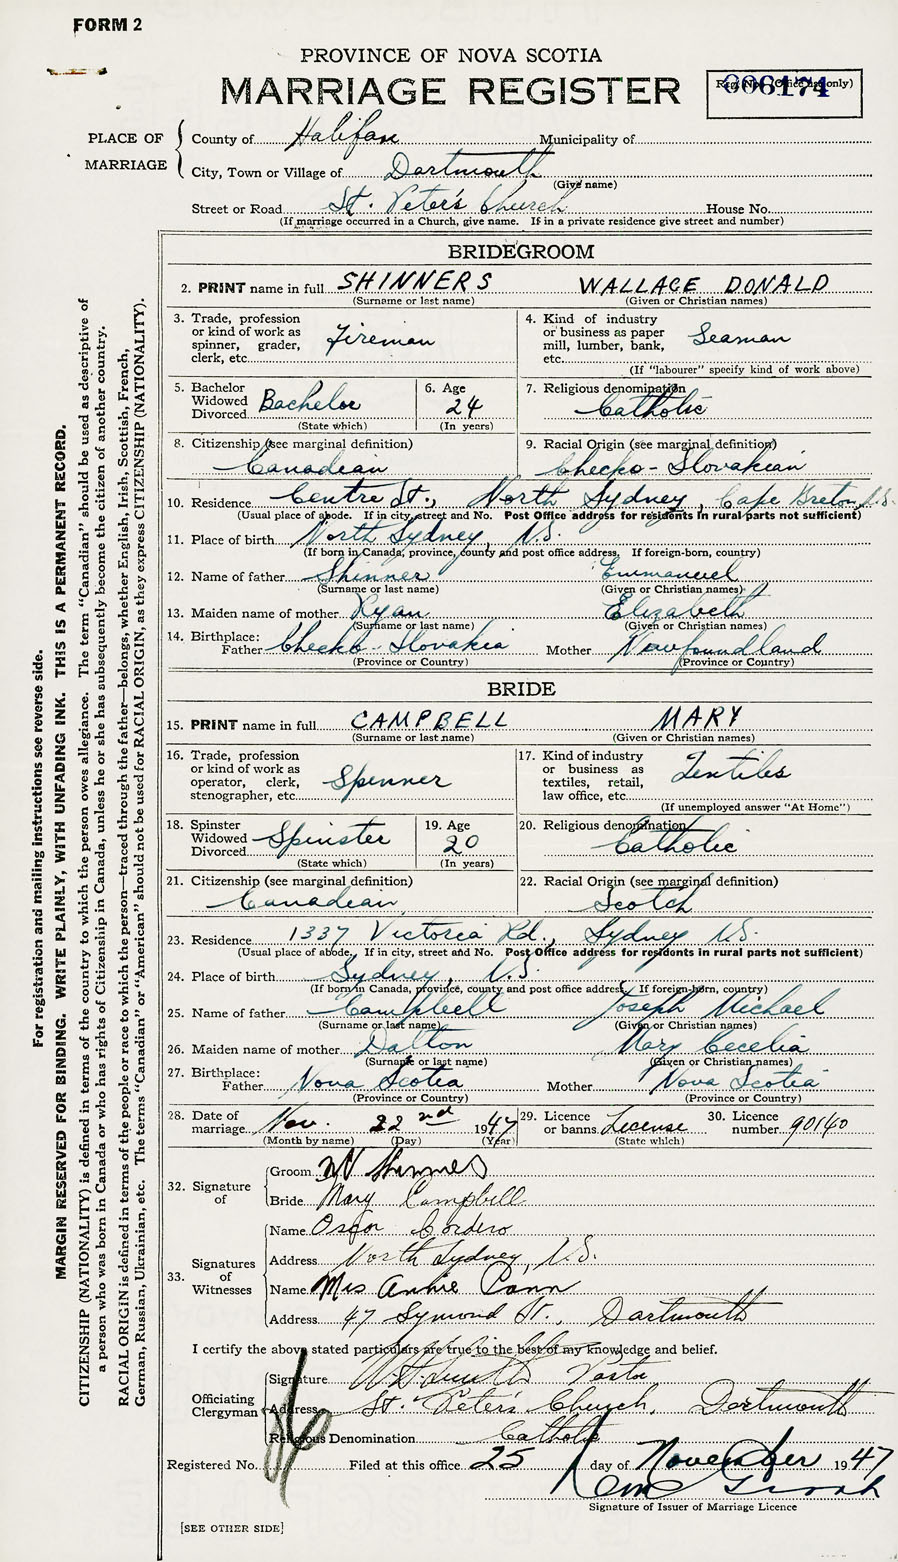 FORM 2
PROVINCE OF NOVA SCOTIA
MARRIAGE REGISTER
Reg. No. (Office use only)
006174
PLACE OF MARRIAGE
County of Halifax Municipality of
City, Town or Village of Dartmouth
(Give name)
Street or Road St. Peter's Church House No.
(If marriage occurred in a Church, give name. If in a private residence give street and number)
BRIDEGROOM
2. PRINT name in full SHINNERS WALLACE DONALD
(Surname or last name) (Given or Christian names)
3. Trade, profession or kind of work as spinner, grader, clerk, etc. Fireman
4. Kind of industry or business as paper mill, lumber, bank, etc. Seaman
(If "labourer" specify kind of work above)
5. Bachelor Widowed Divorced Bachelor
(State which)
6. Age 24
(In years)
7. Religious denomination Catholic
8. Citizenship (see marginal definition) Canadian
9. Racial Origin (see marginal definition) Checko-Slovakian
10. Residence Centre St., North Sydney, Cape Breton N.S.
(Usual place of abode. If in city, street and No. Post Office address for residents in rural parts not sufficient)
11. Place of birth North Sydney, N.S.
(If born in Canada, province, county and post office address. If foreign-born, country)
12. Name of father Shinner Emmanuel
(Surname or last name) (Given or Christian names)
13. Maiden name of mother Ryan Elizabeth
(Surname or last name) (Given or Christian names)
14. Birthplace: Father Checko-Slovakia Mother Newfoundland
(Province or Country) (Province or Country)
BRIDE
15. PRINT name in full CAMPBELL MARY
(Surname or last name) (Given or Christian names)
16. Trade, profession or kind of work as operator, clerk, stenographer, etc. Spenner
17. Kind of industry or business as textiles, retail, law office, etc. Textiles
(If unemployed answer "At Home")
18. Spinster Widowed Divorced Spinster
(State which)
19. Age 20
(In years)
20. Religious denomination Catholic
21. Citizenship (see marginal definition) Canadian
22. Racial Origin (see marginal definition) Scotch
23. Residence 1337 Victoria Rd., Sydney N.S.
(Usual place of abode, If in city, street and No. Post Office address for residents in rural parts not sufficient)
24. Place of birth Sydney, N.S.
(If born in Canada, province, county and post office address. If foreign-born, country)
25. Name of father Campbell Joseph Michael
(Surname or last name) (Given or Christian names)
26. Maiden name of mother Dalton Mary Cecelia
(Surname or last name) (Given or Christian names)
27. Birthplace: Father Nova Scotia Mother Nova Scotia
(Province or Country) (Province or Country)
28. Date of marriage Nov. 22nd 1947
(Month by name) (Day) (Year)
29. Licence or banns License
(State which)
30. Licence number 90140
32. Signature of
Groom W Shinners
Bride Mary Campbell
33. Signatures of Witnesses
Name Oscar Cordero
Address North Sydney, N.S.
Name Mrs Annie Conn
Address 47 Symond St., Dartmouth
I certify the above stated particulars are true to the best of my knowledge and belief.
Officiating Clergyman
Signature Smith Pastor
Address St. Peter's Church, Dartmouth
Religious Denomination Catholic
Registered No. Filed at this office 25 day of November 1947
Signature of Issuer of Marriage Licence
[SEE OTHER SIDE]
For registration and mailing instructions see reverse side.
MARGIN RESERVED FOR BINDING. WRITE PLAINLY, WITH UNFADING INK. THIS IS A PERMANENT RECORD.
CITIZENSHIP (NATIONALITY) is defined in terms of the country to which the person owes allegiance. The term "Canadian" should be used as descriptive of
a person who was born in Canada or who has rights of Citizenship in Canada, unless he or she has subsequently become the citizen of another country.
RACIAL ORIGIN is defined in terms of the people or race to which the person—traced through the father—belongs, whether English, Irish, Scottish, French,
German, Russian, Ukrainian, etc. The terms "Canadian" or "American" should not be used for RACIAL ORIGIN, as they express CITIZENSHIP (NATIONALITY).